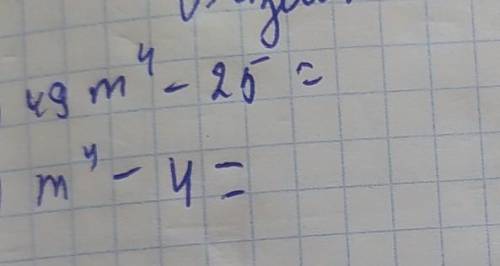 49 m⁴ - 25 =
m⁴ - 4 =